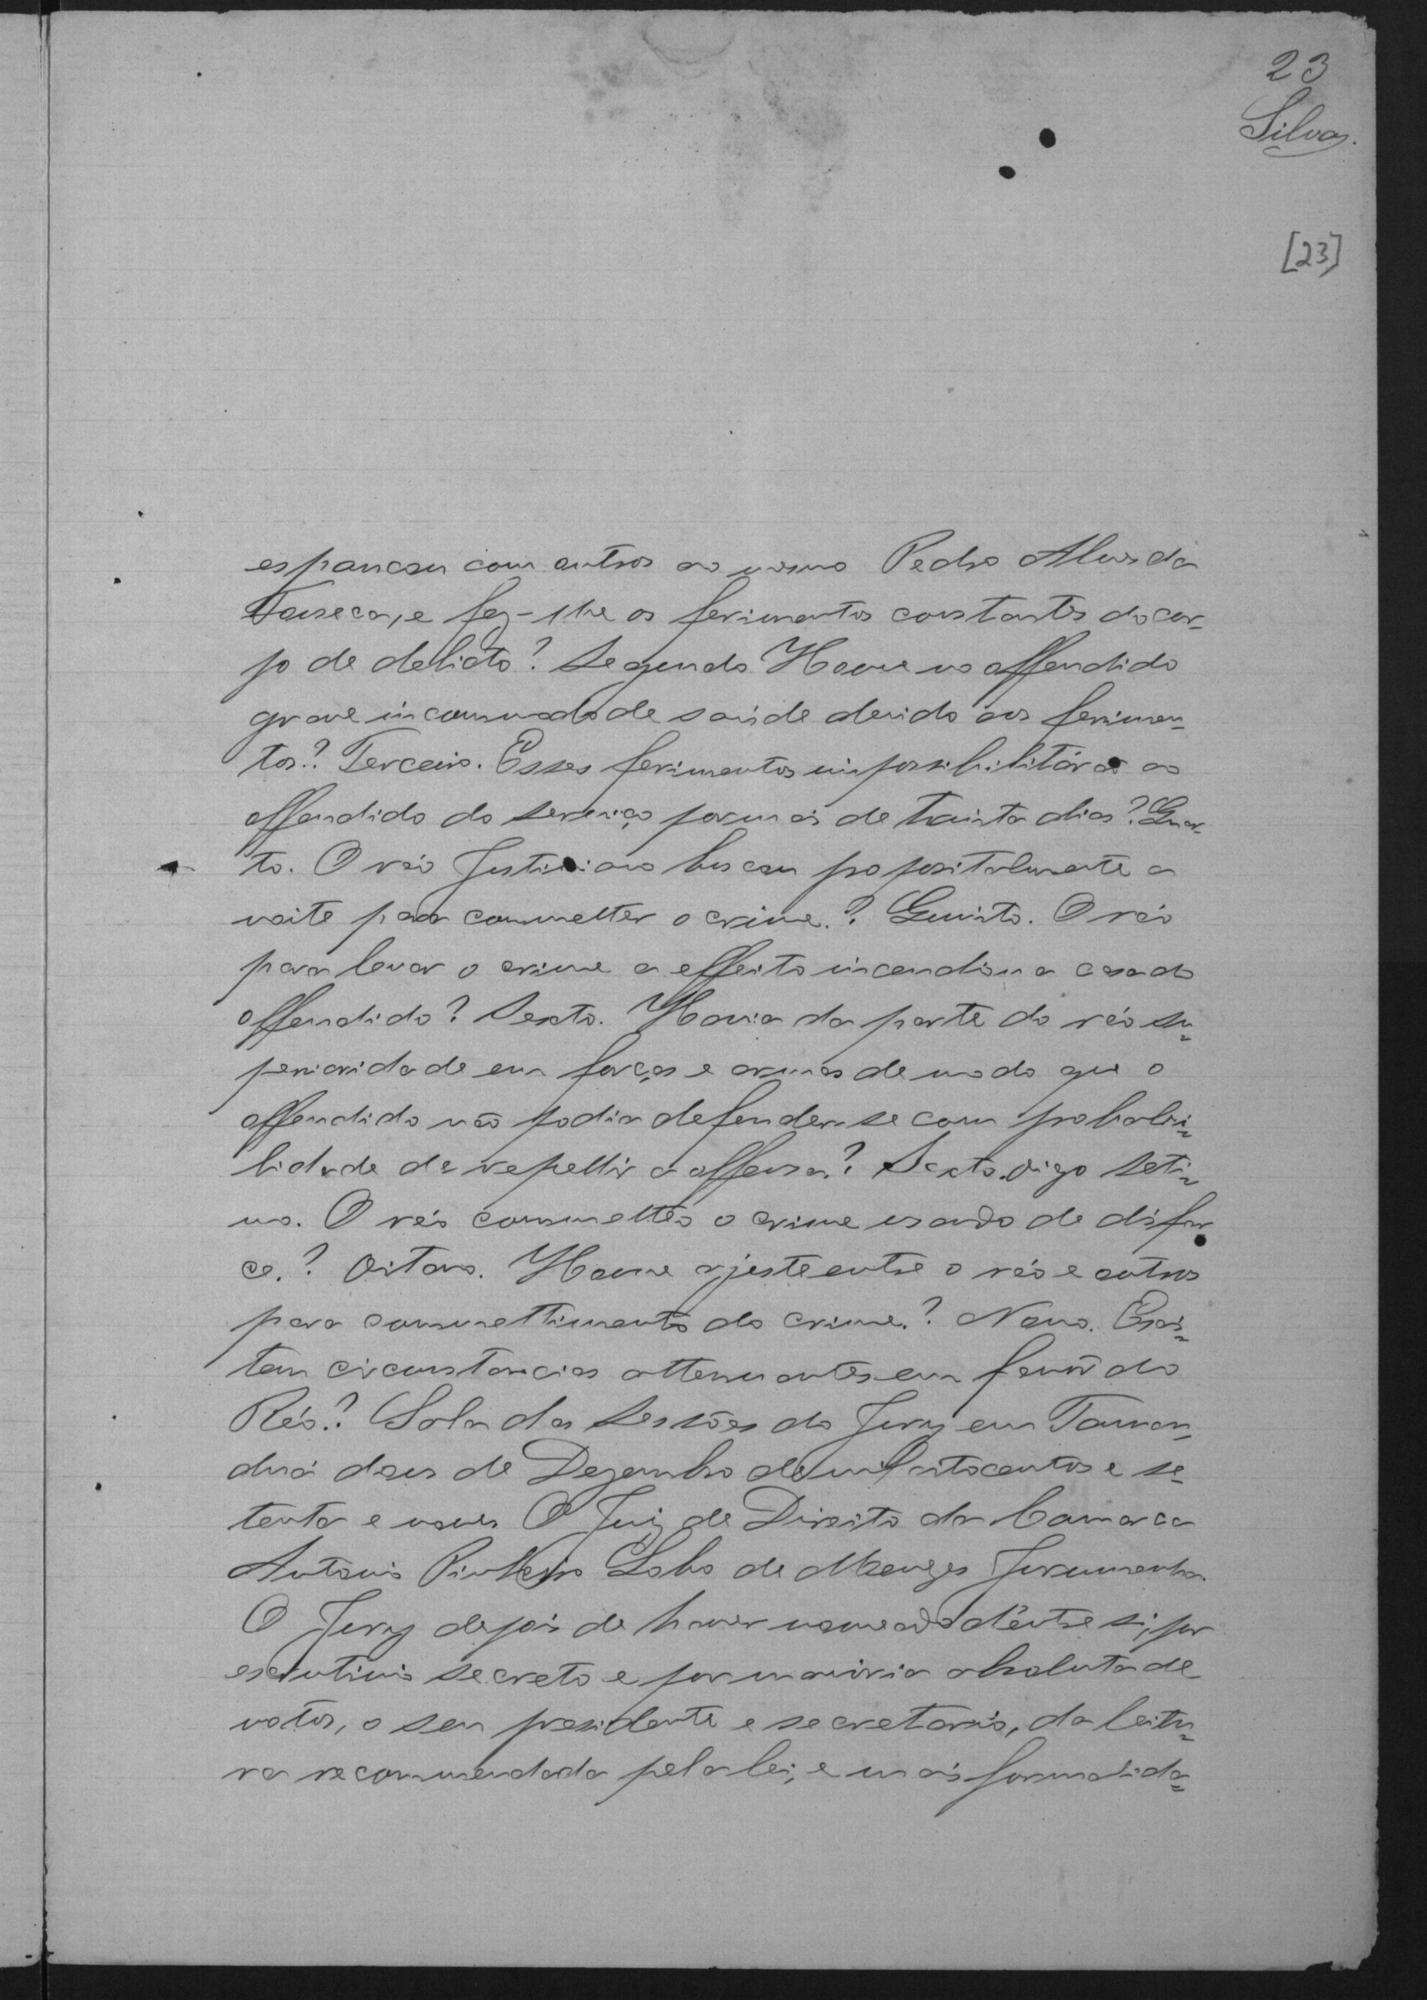 23
Silva.
[23]
espancou com outros ao mesmo Pedro Alves da
Fonseca, e fez-lhe os ferimentos constantes do cor-
po de delicto? Segundo Houve no offendido
grave incommodo de saúde devido aos ferimen-
tos? Terceiro. Esses ferimentos impossibilitárão ao
offendido do serviço por mais de trinta dias? Quar-
to. O réo Justiniano buscou propositalmente a
noite para commetter o crime.? Quinto. O réo
para levar o crime a effeito incendiou a casa do
offendido? Sexto. Havia da parte do réo su-
perioridade em forças e armas de modo que o
offendido não podia defender-se com probabi-
lidade de repellir a offensa? Sexto, digo seti-
mo. O réo commetteo o crime usando de disfar
ce.? Oitavo. Houve ajuste entre o réo e outros
para commettimento do crime.? Nono. Exis-
tem circunstancias attenuantes em favôr do
Réo? Sala das Sessões do Jury em Taman-
duá dous de Dezembro de mil oitocentos e se-
tenta e nove O Juiz de Direito da Comarca
Antonio Pinheiro Lobo de Menezes Jurumenha.
O Jury depois de haver nomeado d'entre si, por
escrutinio secreto e por maioria absoluta de
votos, o seu presidente e secretario, da leitu-
ra recommendada pela lei, e mais formalida-